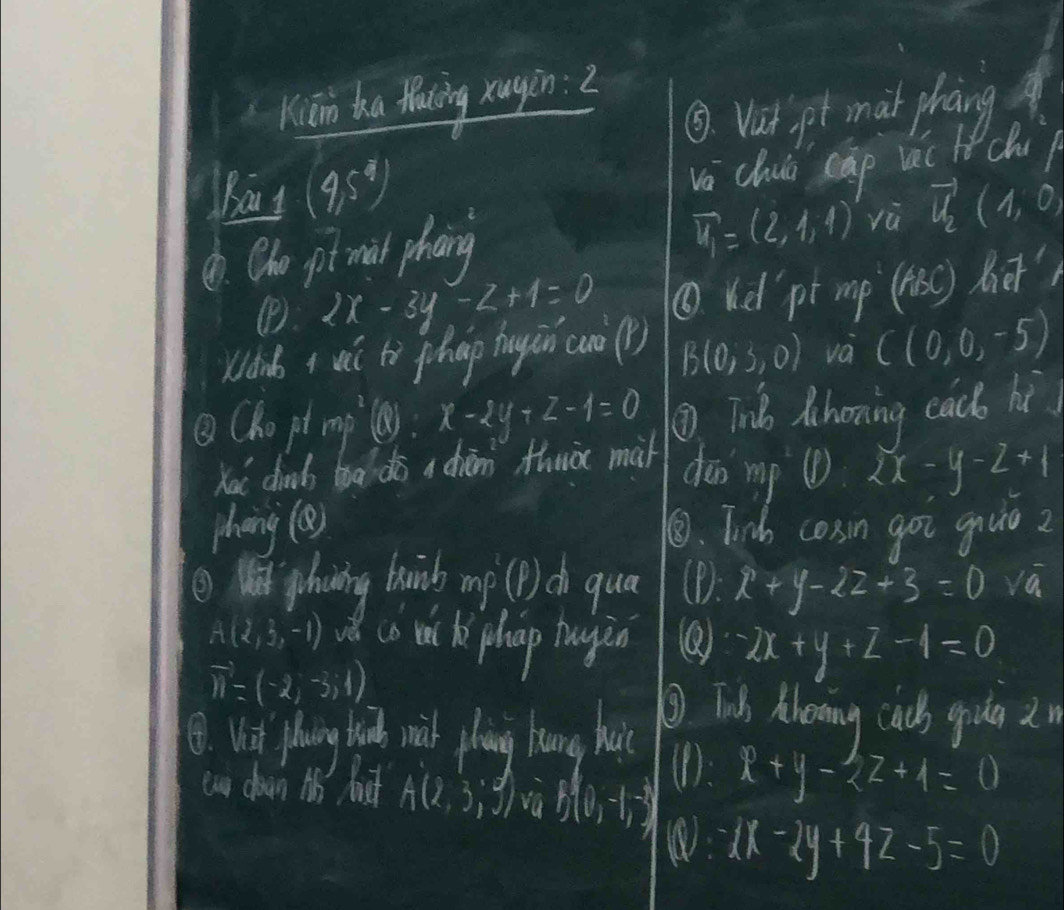 Kiểm tra thường xuyên: 2
Bài 1 (4,5đ)
①. Cho pt mặt phẳng
(P): 2x - 3y - z + 1 = 0
Xđịnh 1 véc tơ pháp tuyến của (P)
② Cho pt mp (Q): x - 2y + z - 1 = 0
Xác định toạ độ 1 điểm thuộc mặt
phẳng (Q)
③ Viết phương trình mp (P) đi qua
A(2,3,-1) và có véc tơ pháp tuyến
n⃗ = (-2; -3; 1)
④. Viết phương trình mặt phẳng trung trực
của đoạn AB biết A(2, 3; 5) và B(0; -1; -3)
⑤. Viết pt mặt phẳng
và chứa cặp véc tơ chỉ
u⃗₁ = (2, 1, 1) và u⃗₂ (1; 0
⑥ Viết pt mp (ABC) biết
B(0; 3, 0) và C(0, 0, -5)
⑦ Tính khoảng cách từ
đến mp (P): 2x - y - z + 1
⑧. Tính cosin góc giữa 2
(P): x + y - 2z + 3 = 0 và
(Q): -2x + y + z - 1 = 0
⑨. Tính khoảng cách giữa 2 m
(P): x + y - 2z + 1 = 0
(Q): -2x - 2y + 4z - 5 = 0